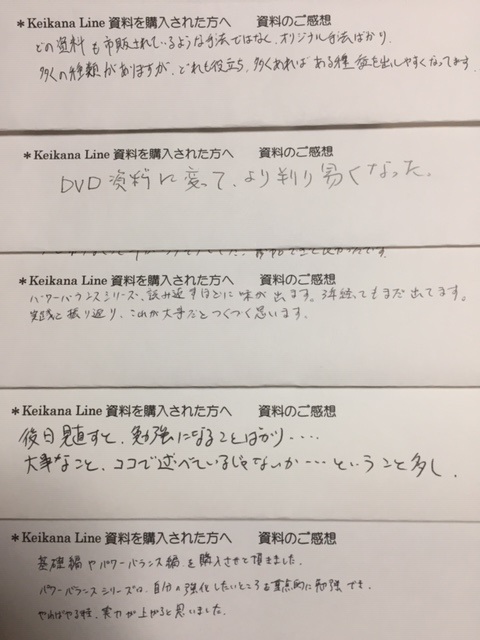 ＊Keikana Line 資料を購入された方へ　　資料のご感想
どの資料も市販されているような手法ではなく、オリジナル手法ばかり。
多くの種類がありますが、どれも役立ち、多くあればある種 症を出しやすくなってます。
＊Keikana Line 資料を購入された方へ　　資料のご感想
DVD資料に変って、より判り易くなった。
＊Keikana Line 資料を購入された方へ　　資料のご感想
パワーバランスシリーズ、読み返すほどに味が出ます。3年経ってもまだ出てます。
実践と振り返り、これが大事だとつくづく思います。
＊Keikana Line 資料を購入された方へ　　資料のご感想
後日見直すと、勉強になることばかり・・・・
大事なこと、ココで述べているじゃないか・・・ということ多し、
＊Keikana Line 資料を購入された方へ　　資料のご感想
基礎編やパワーバランス編を購入させて頂きました。
パワーバランスシリーズは、自分の強化したいところを重点的に勉強でき、
やればやる程、実力が上がると思いました。